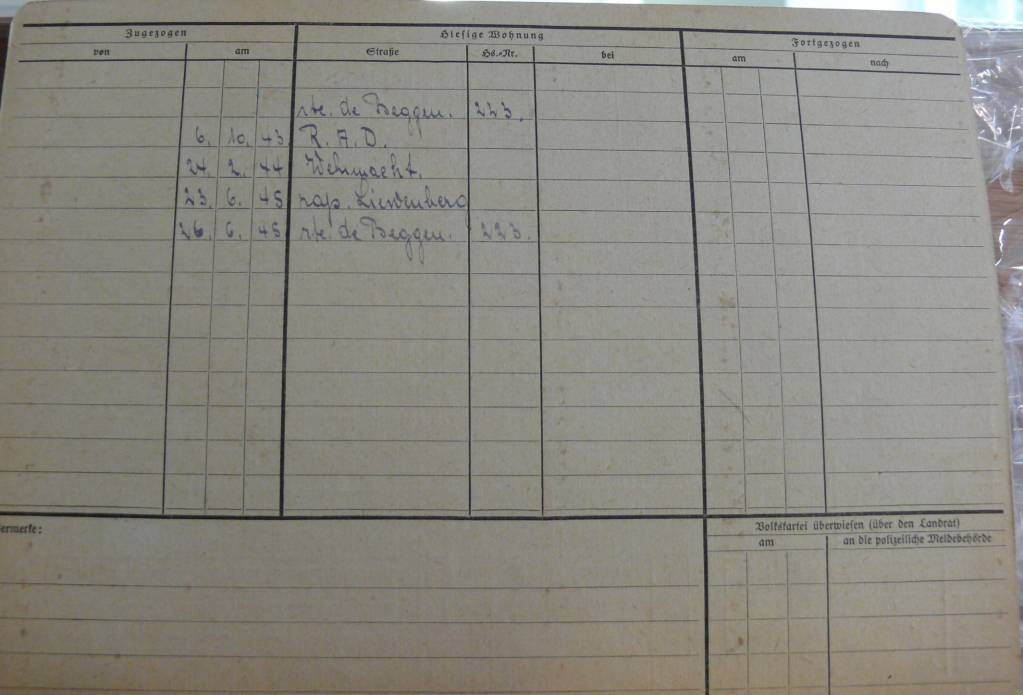 Zugezogen Hiesige Wohnung Fortgezogen
von am Straße Hs.-Nr. bei am nach
rte. de Beggen. 223.
6. 10. 43 R. A. D.
24. 2. 44 Wehrmacht.
23. 6. 45 rap.
26. 6. 45 rte. de Beggen. 223.
ermerke:
Volkskartei überwiesen (über den Landrat)
am an die polizeiliche Meldebehörde